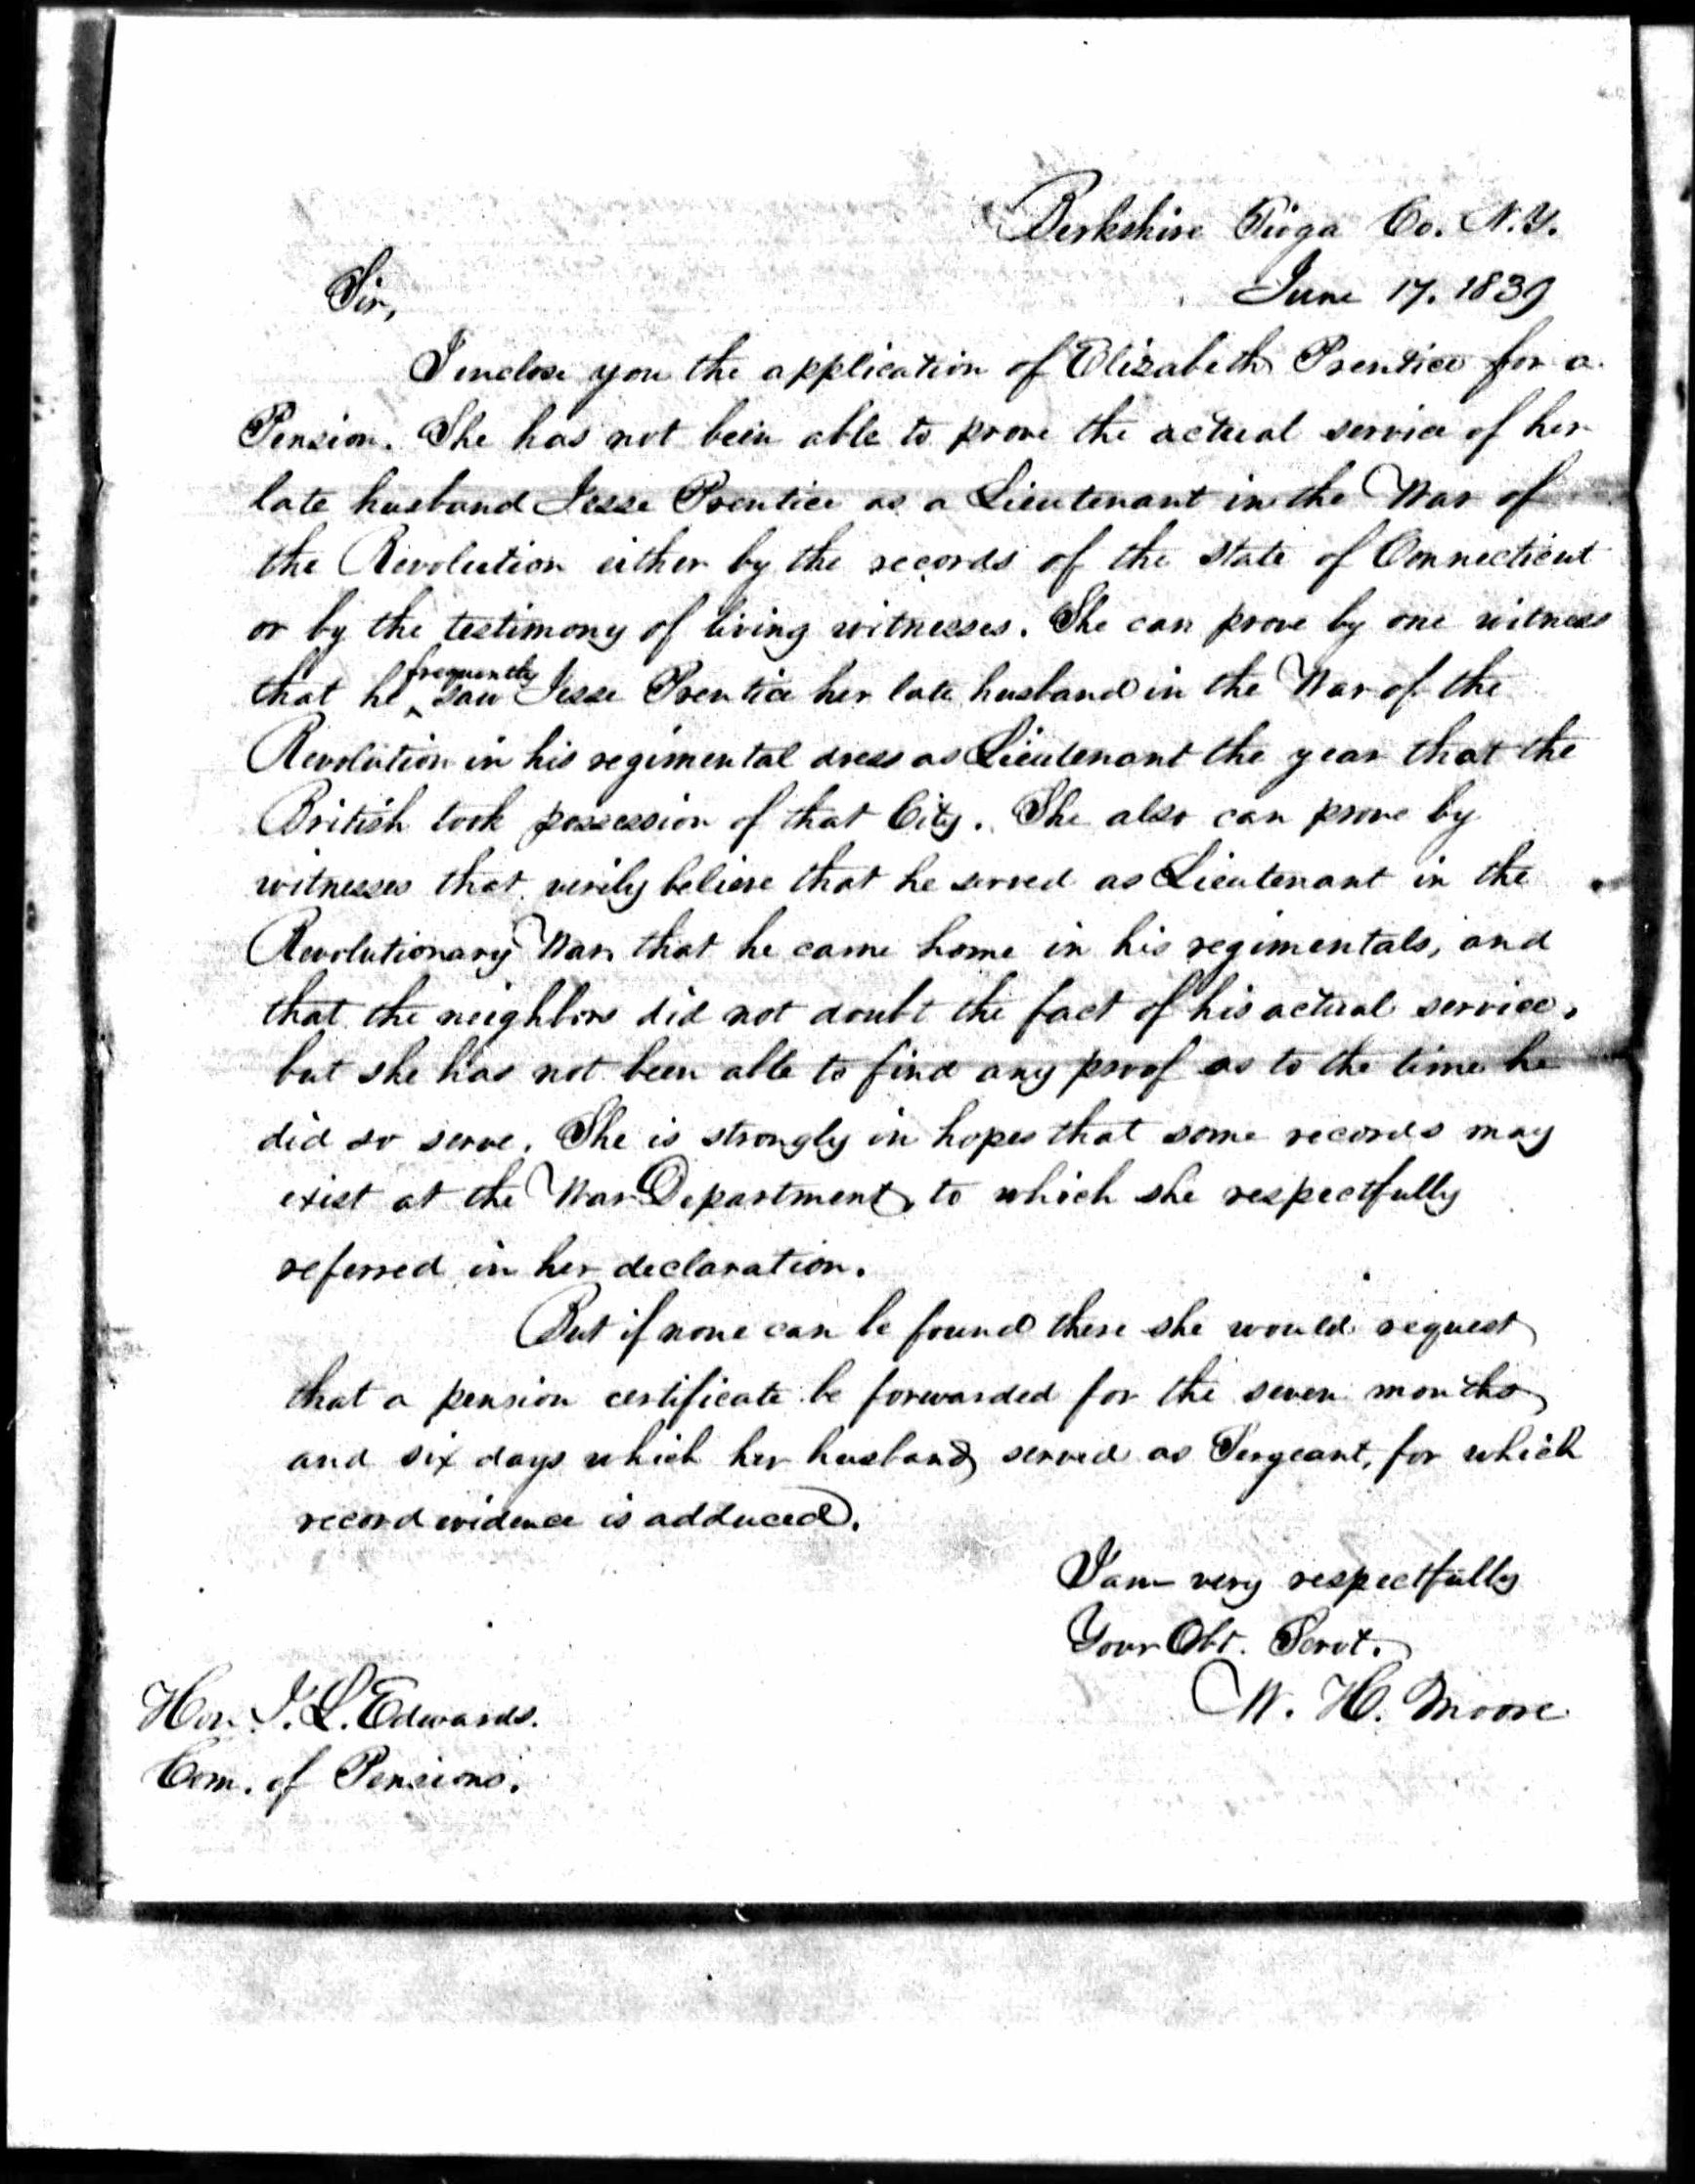 Berkshire Tioga Co. N.Y.
June 17. 1839
Sir,
I enclose you the application of Elizabeth Prentice for a
Pension. She has not been able to prove the actual service of her
late husband Jesse Prentice as a Lieutenant in the War of
the Revolution either by the records of the state of Connecticut
or by the testimony of living witnesses. She can prove by one witness
that he frequently saw Jesse Prentice her late husband in the War of the
Revolution in his regimental dress as Lieutenant the year that the
British took possession of that City. She also can prove by
witnesses that verily believe that he served as Lieutenant in the
Revolutionary War, that he came home in his regimentals, and
that the neighbors did not doubt the fact of his actual service,
but she has not been able to find any proof as to the time he
did so serve. She is strongly in hopes that some records may
exist at the War Department, to which she respectfully
referred in her declaration.
But if none can be found there she would request
that a pension certificate be forwarded for the seven months
and six days which her husband served as Sergeant, for which
record evidence is adduced.
I am very respectfully
Your Obt. Servt.
W. H. Moore
Hon. J. L. Edwards.
Com. of Pensions.